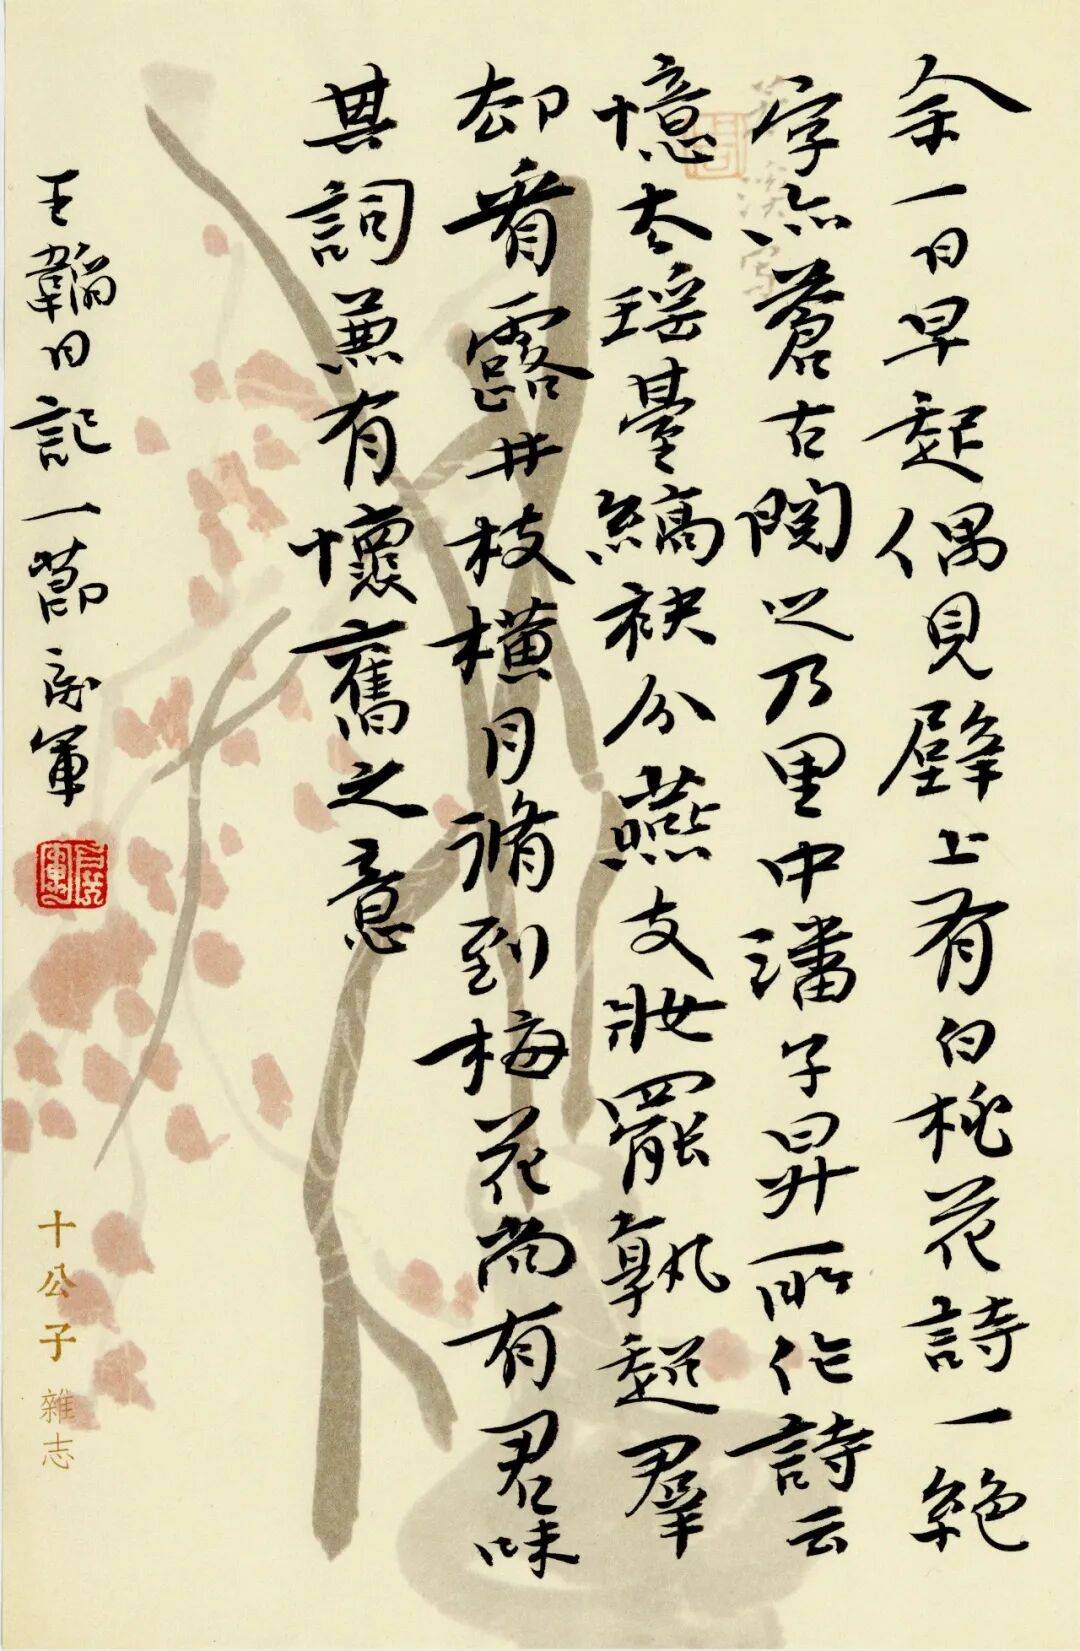 余一日早起偶見壁上有白桃花詩一絶
字亦蒼古閱之乃里中潘子昇所作詩云
憶太瑶臺縞袂分燕支妝罷孰超羣
却看露井枝橫月脩到梅花尚有君味
其詞兼有懷舊之意
王韜日記一節
軍
十公子
雜志